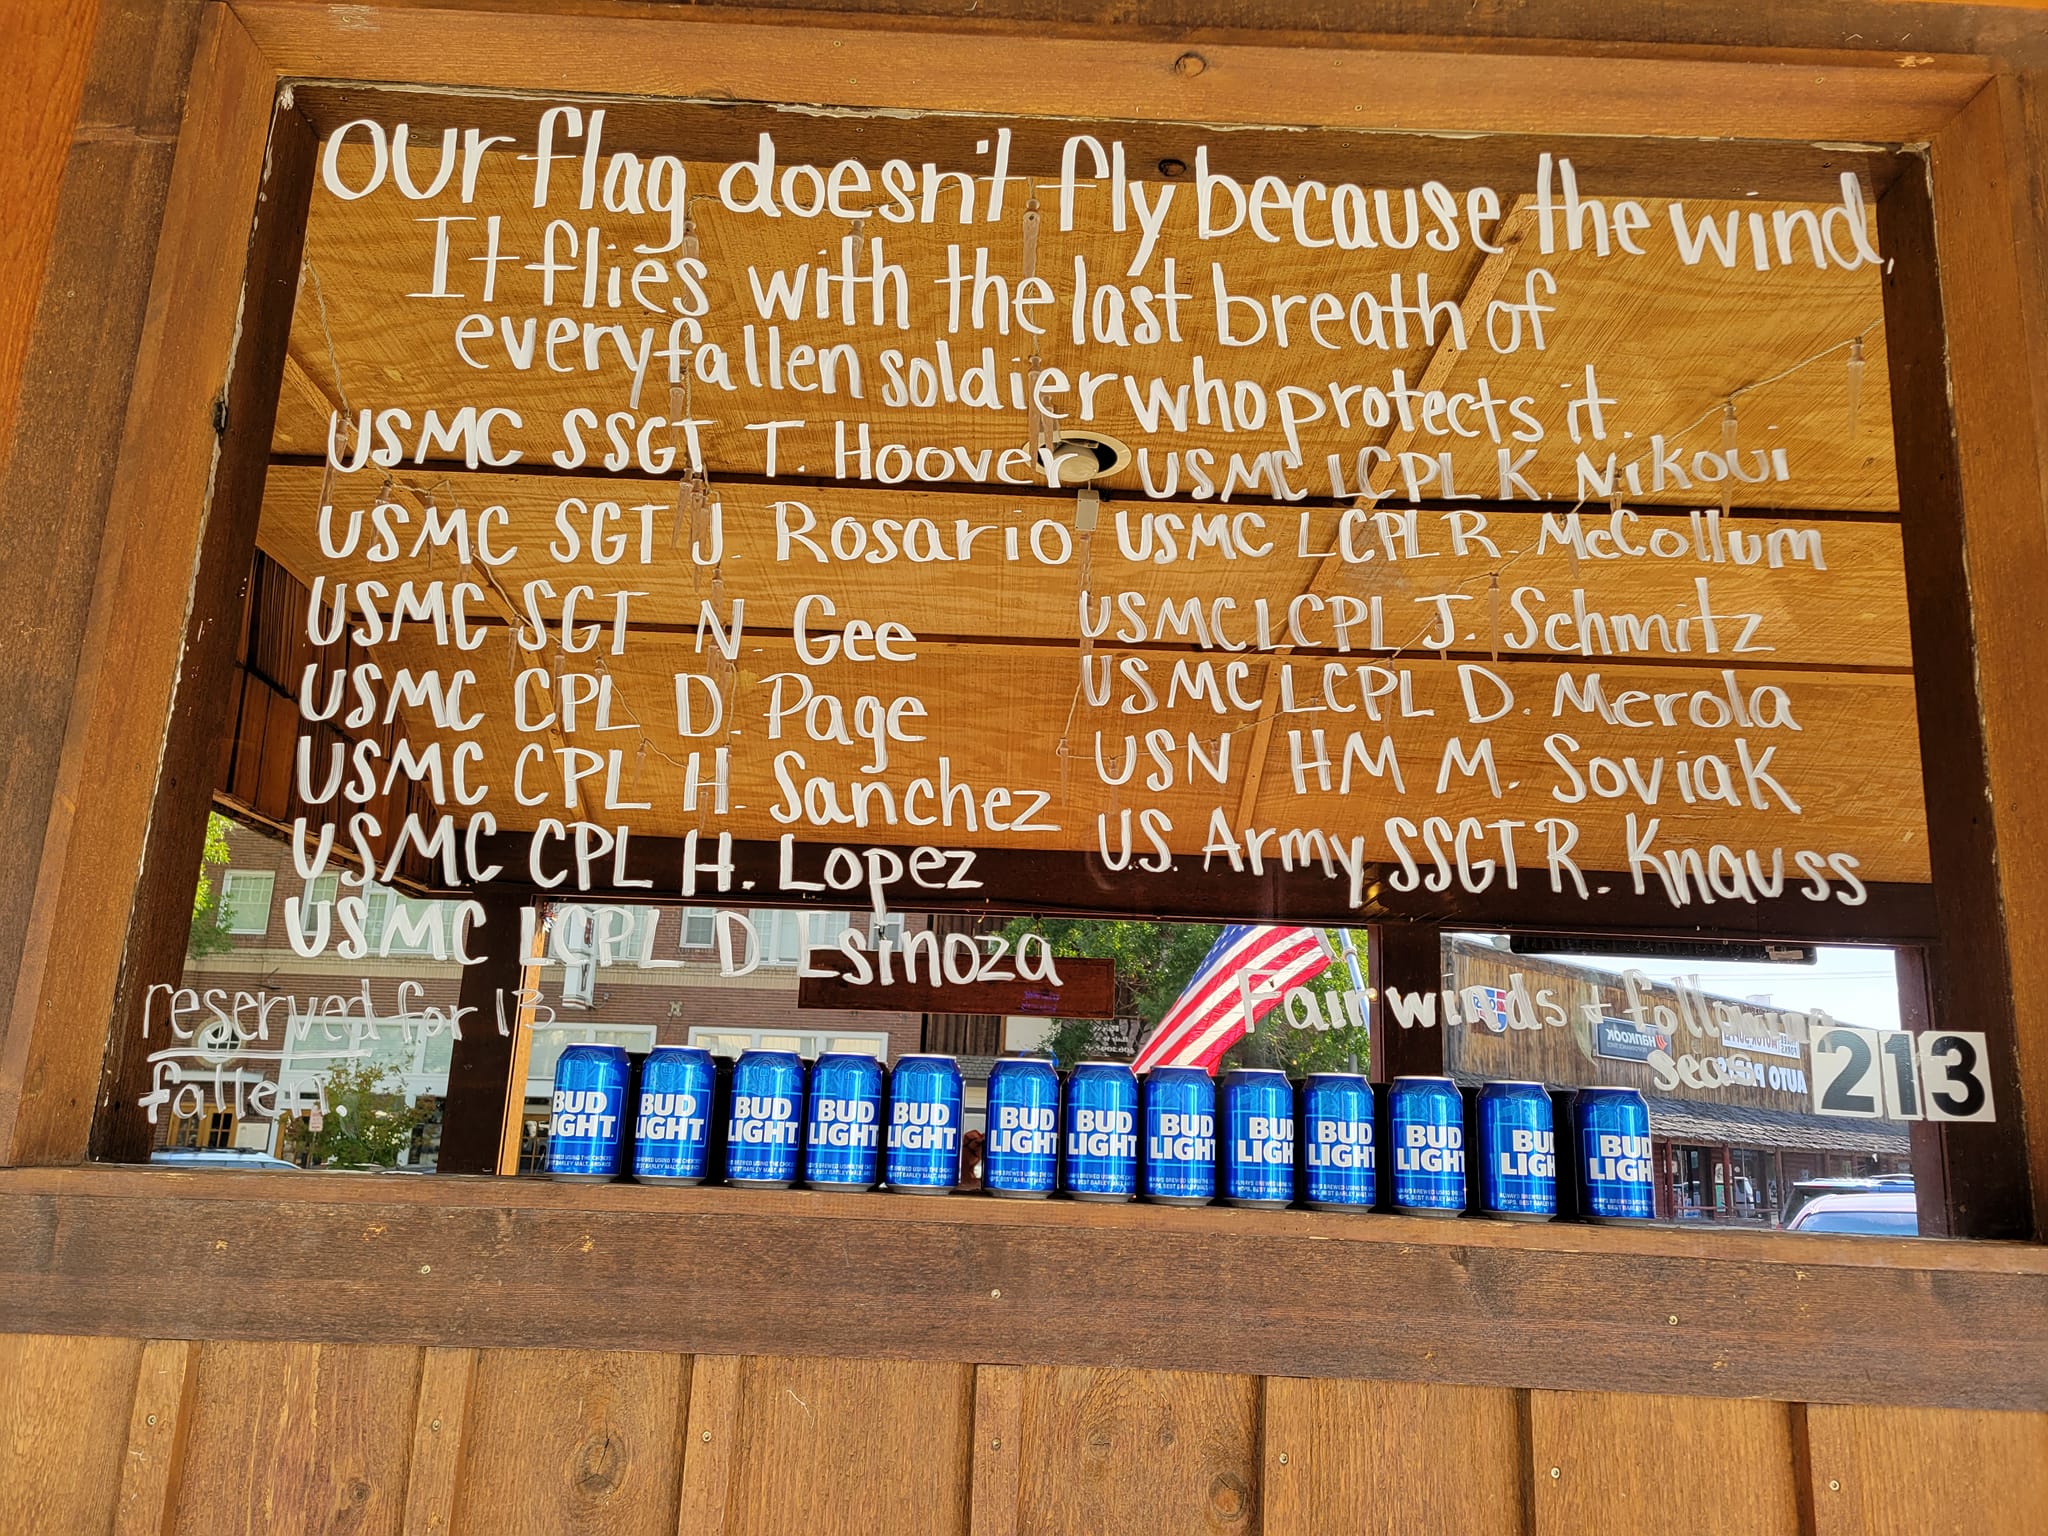 Our flag doesn't fly because the wind,
It flies with the last breath of
every fallen soldier who protects it.
USMC SSGT T. Hoover
USMC SGT J. Rosario
USMC SGT N Gee
USMC CPL D. Page
USMC CPL H. Sanchez
USMC CPL H. Lopez
USMC LCPL D Esinoza
USMC LCPL K. Nikoui
USMC LCPL R. McCollum
USMC LCPL J. Schmitz
USMC LCPL D. Merola
USN HM M. Soviak
U.S. Army SSGT R. Knauss
reserved for 13
fallen.
Fair winds + following
seas
213
HANKOOK
AUTO PARTS
BUD LIGHT
BUD LIGHT
BUD LIGHT
BUD LIGHT
BUD LIGHT
BUD LIGHT
BUD LIGHT
BUD LIGHT
BUD LIGHT
BUD LIGHT
BUD LIGHT
BUD LIGHT
BUD LIGHT